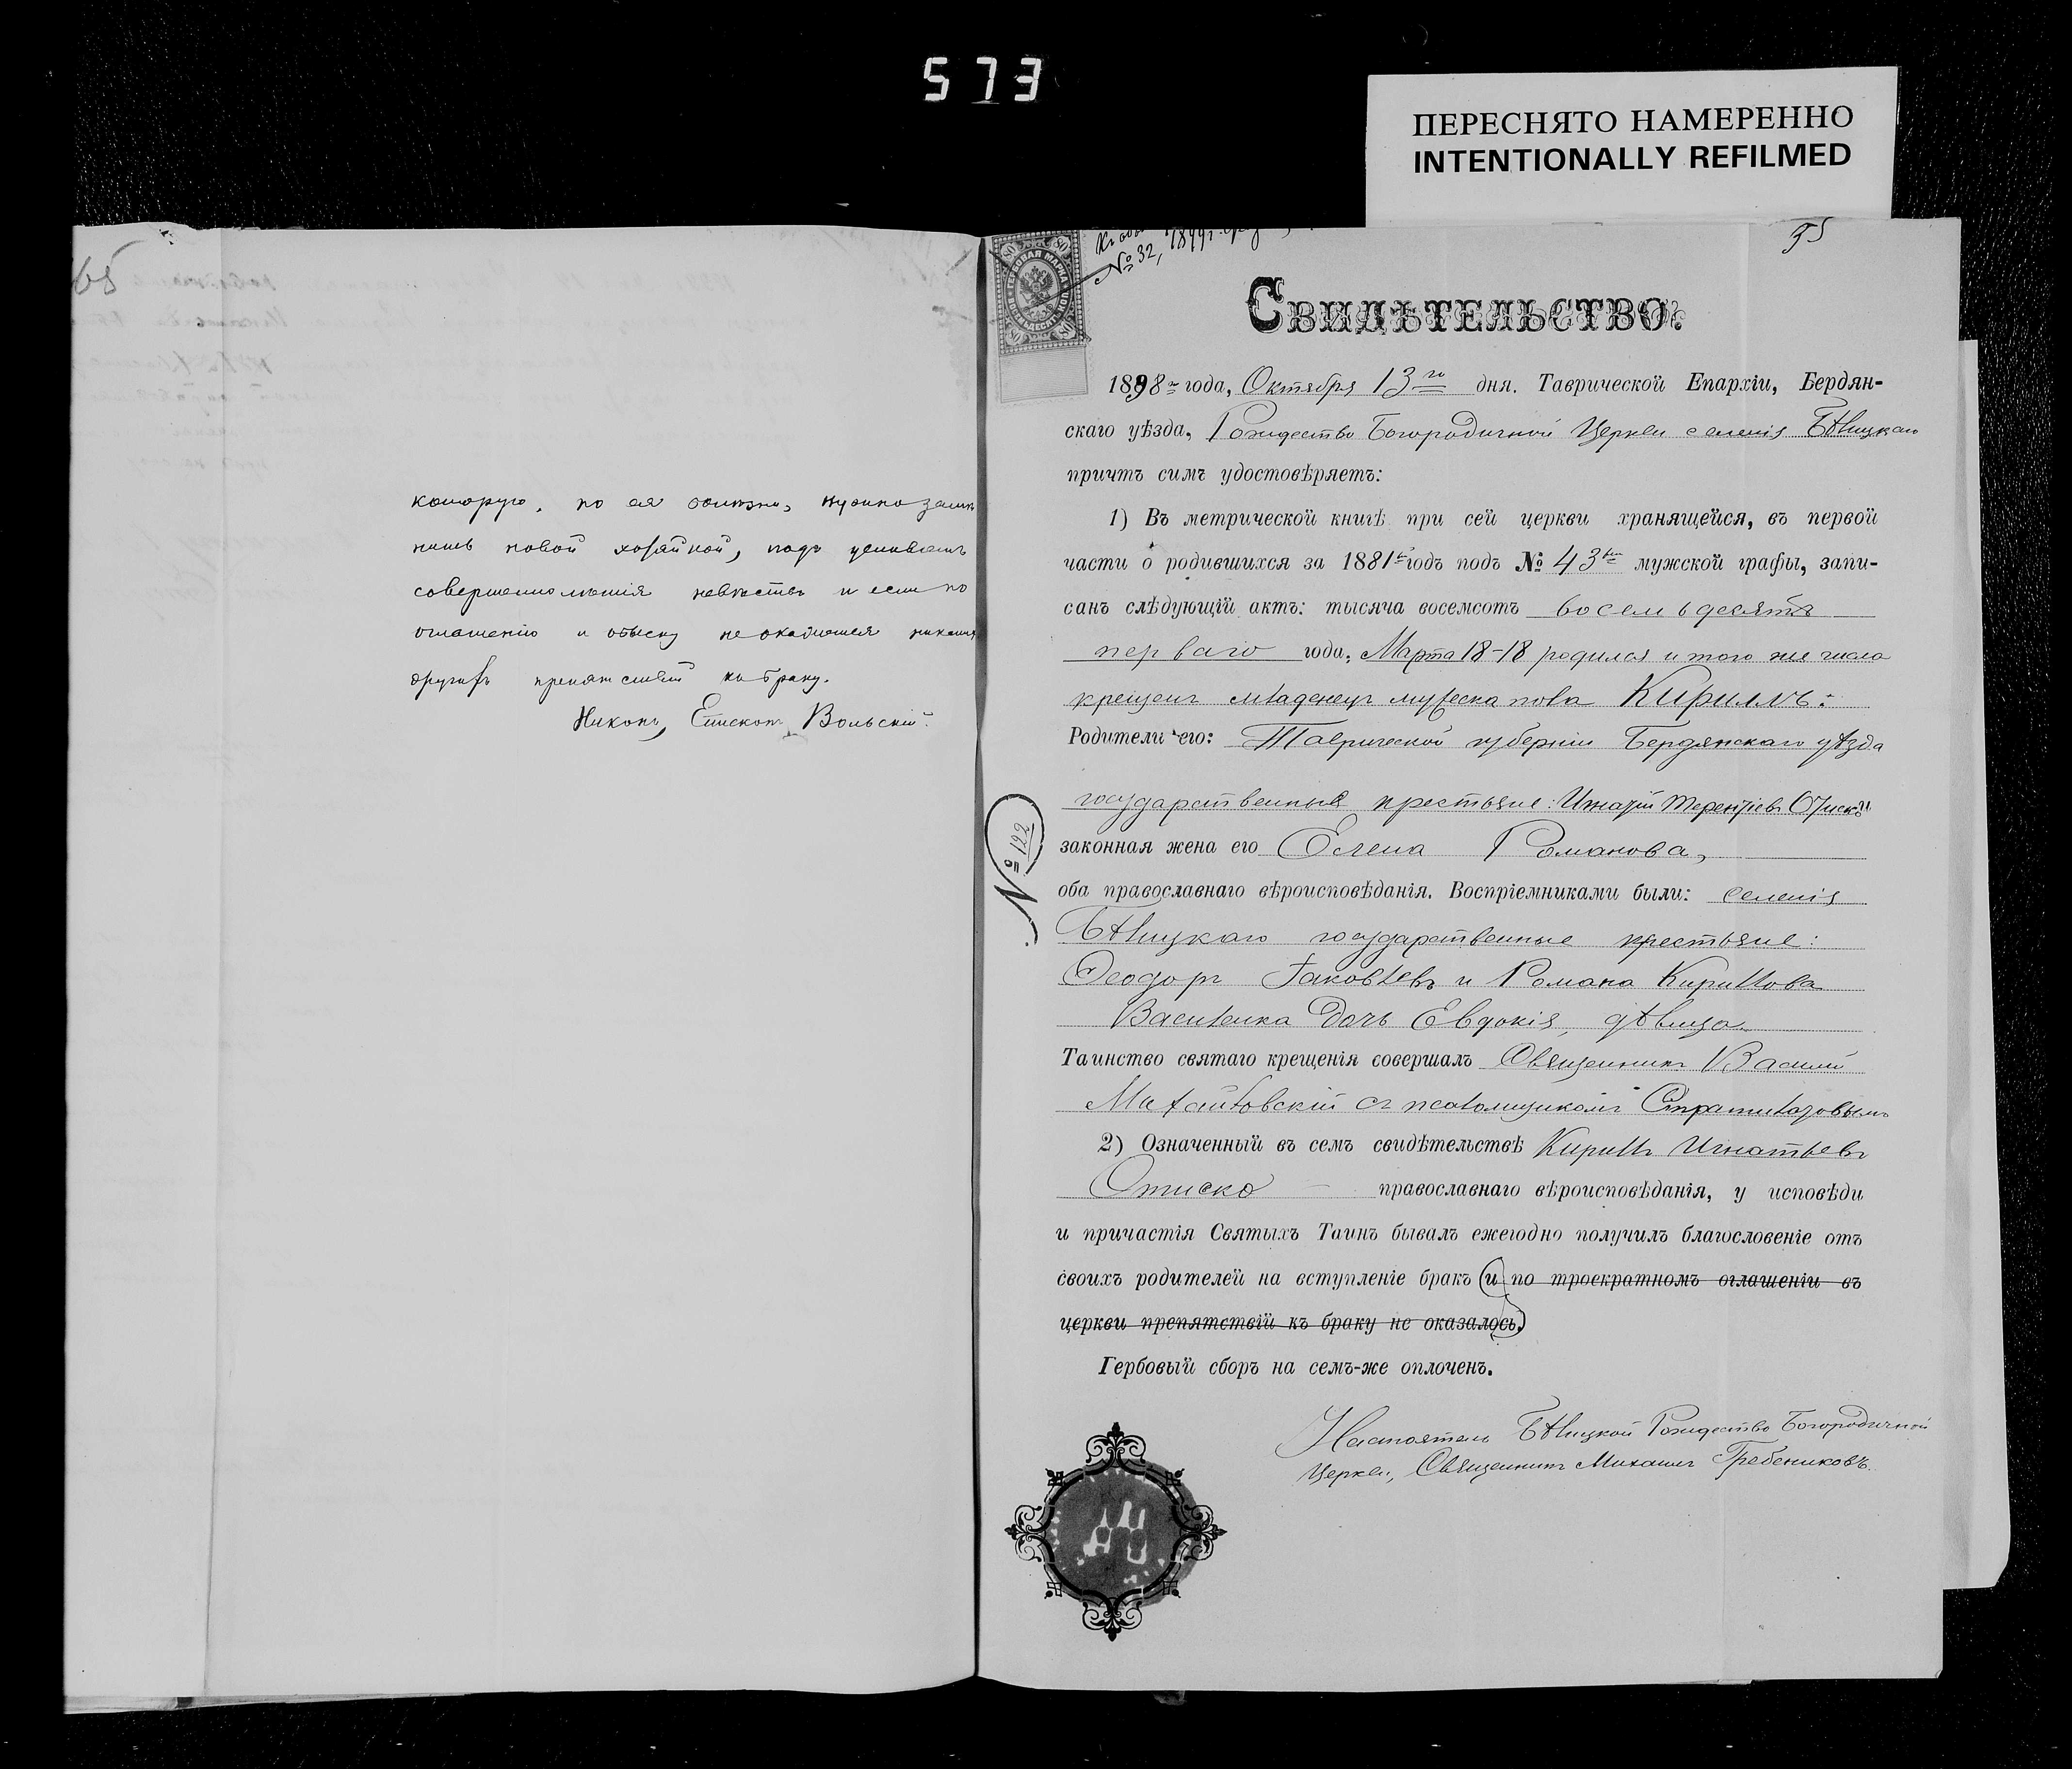 573
ПЕРЕСНЯТО НАМЕРЕННО
INTENTIONALLY REFILMED
65
которую, по ея болѣзни, нужно замѣ
нить новой хозяйкой, подъ условіемъ
совершеннолѣтія невѣсты и если по
оглашенію и обыску не окажется никакихъ
другихъ препятствій къ браку.
Никонъ, Епископъ Вольскій.
№ 32, 1899 г.
55
80 80
СВИДѢТЕЛЬСТВО.
1898 го года, Октября 13 го дня. Таврической Епархіи, Бердян-
скаго уѣзда, Рождество Богородичной Церкви селенія Бѣлицкаго
причтъ симъ удостовѣряетъ:
1) Въ метрической книгѣ при сей церкви хранящейся, въ первой
части о родившихся за 1881 годъ подъ № 43 мужской графы, запи-
санъ слѣдующій актъ: тысяча восемсотъ восемьдесятъ
перваго года, Марта 18-18 родился и того же числа
крещенъ младенецъ мужеска пола Кириллъ:
Родители его: Таврической губерніи Бердянскаго уѣзда
государственные крестьяне: Игнатій Терентіевъ и
законная жена его Елена Романова,
оба православнаго вѣроисповѣданія. Воспріемниками были: селенія
Бѣлицкаго государственные крестьяне:
Ѳеодоръ Іаковлевъ и Романа Кириллова
Василенка дочь Евдокія, дѣвица
Таинство святаго крещенія совершалъ Священникъ Василій
Михайловскій съ псаломщикомъ Стратилатовымъ
2) Означенный въ семъ свидѣтельствѣ Кириллъ Игнатьевъ
Описко православнаго вѣроисповѣданія, у исповѣди
и причастія Святыхъ Таинъ бывалъ ежегодно получилъ благословеніе отъ
своихъ родителей на вступленіе бракъ и по троекратномъ оглашеніи въ
церкви препятствій къ браку не оказалось.
Гербовый сборъ на семъ-же оплоченъ.
№ 122
Настоятель Бѣлицкой Рождество Богородичной
Церкви, Священникъ Михаилъ Гребениковъ.